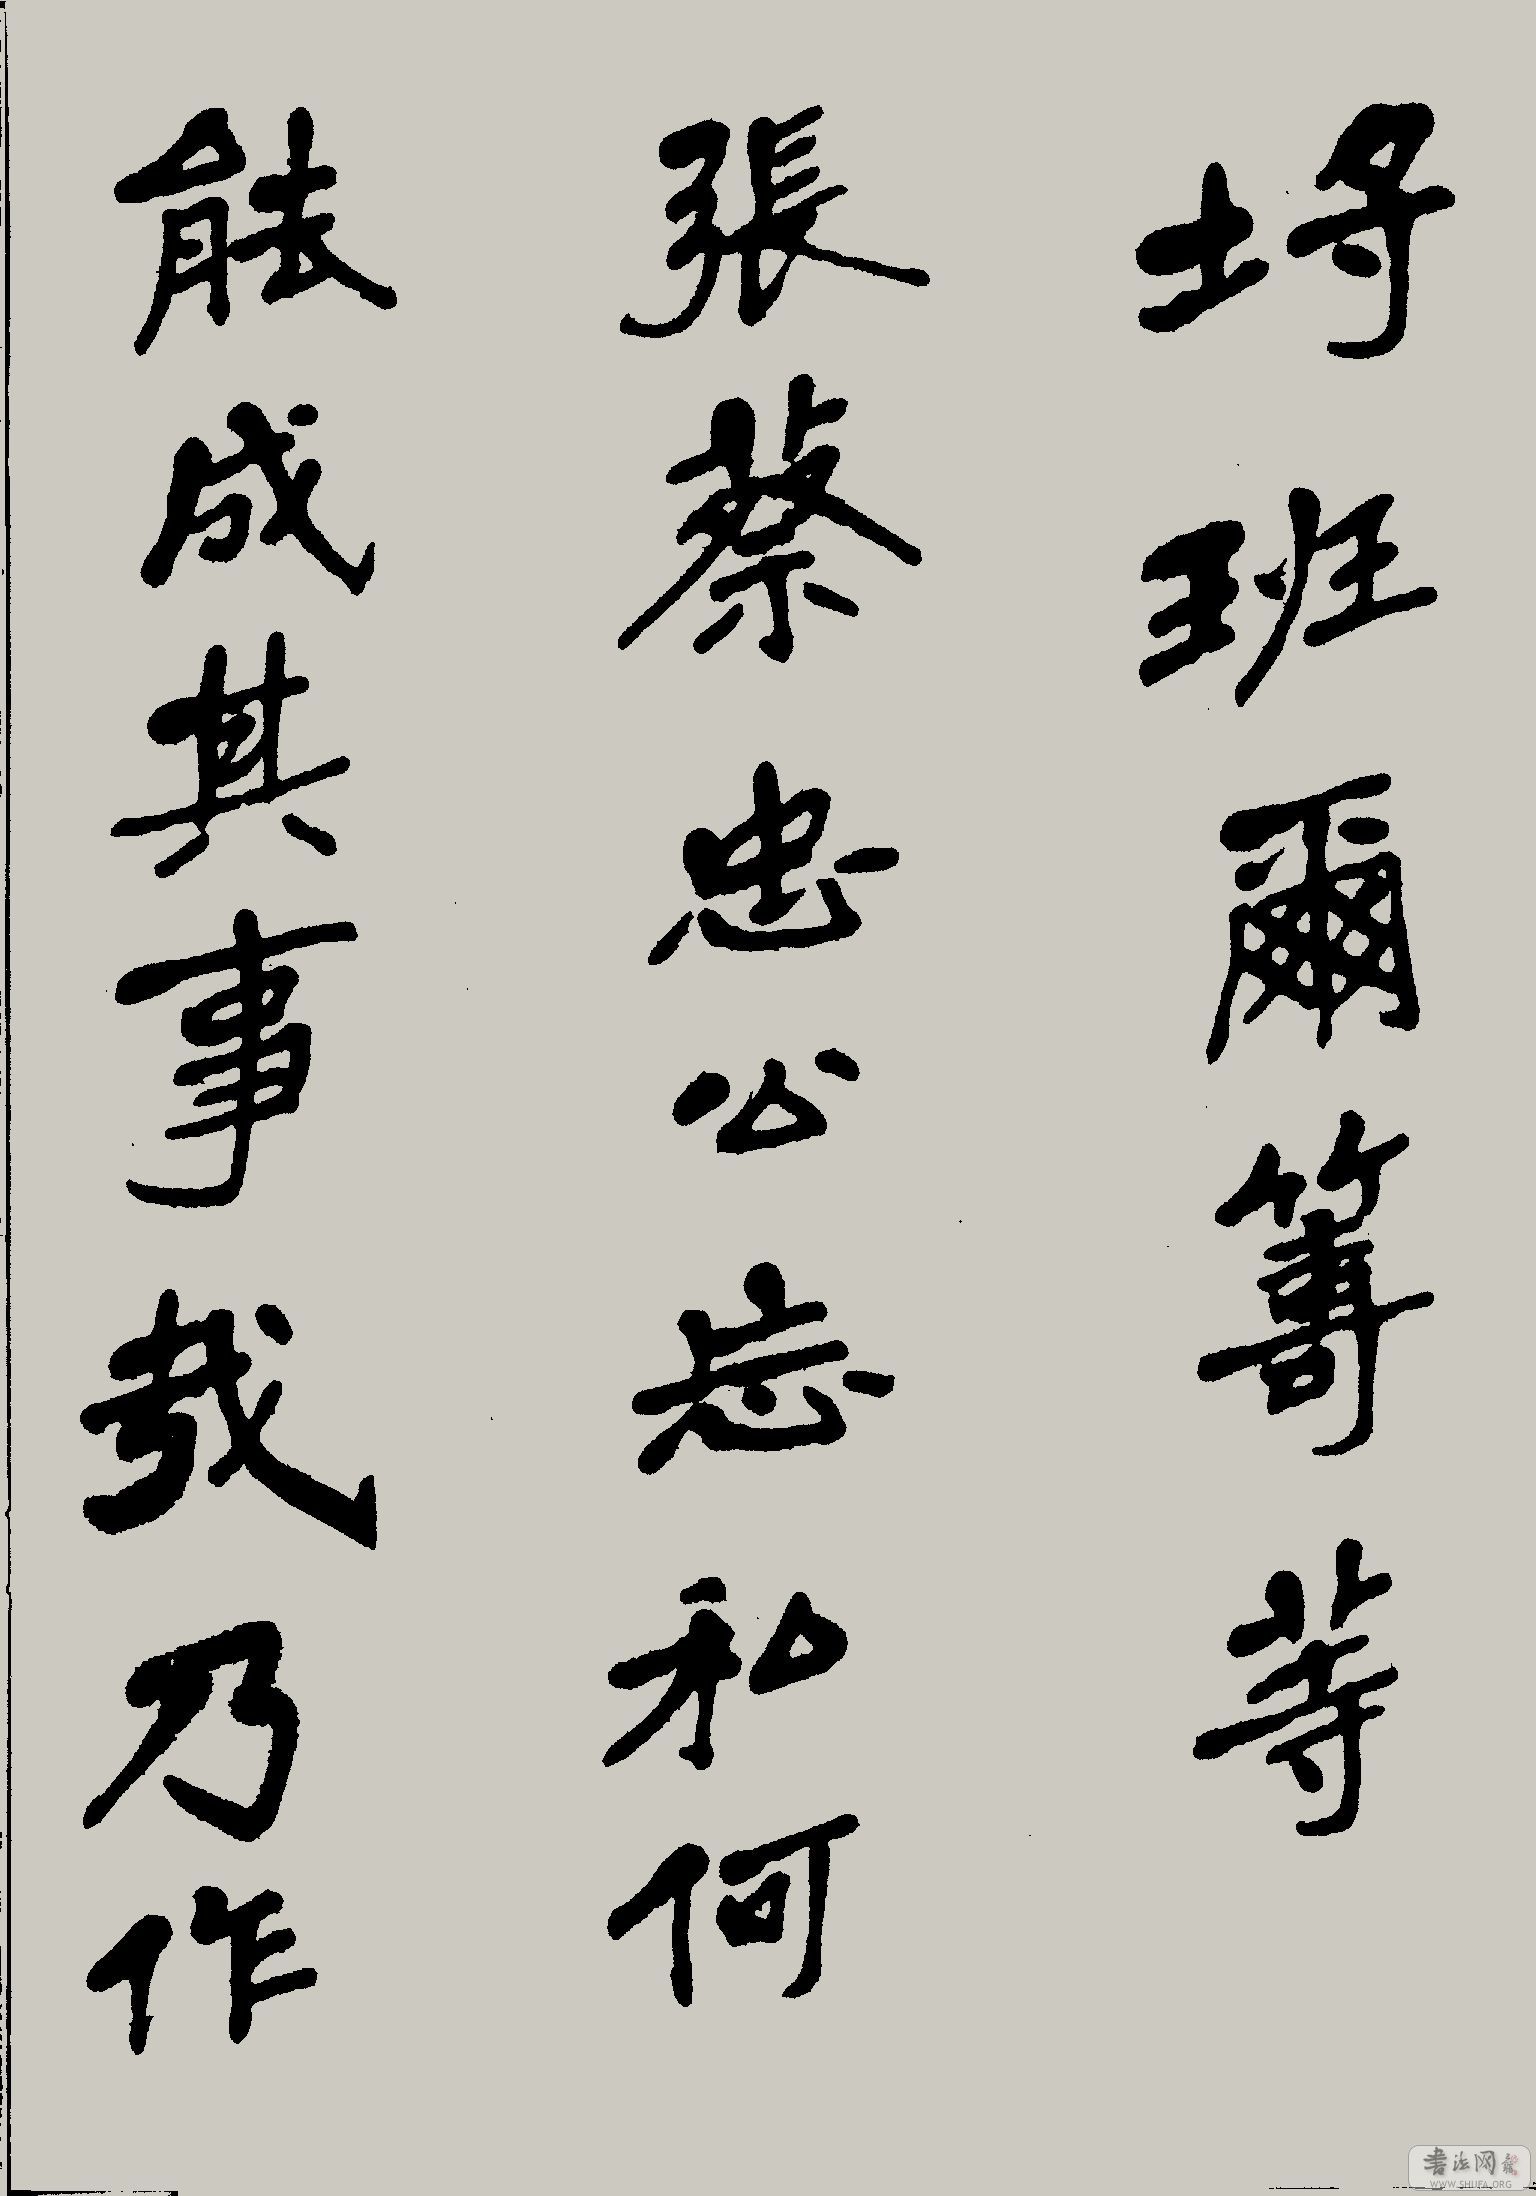 埒班爾籌等
張蔡忠公忘私何
能成其事哉乃作
书法网
WWW.SHUFA.ORG